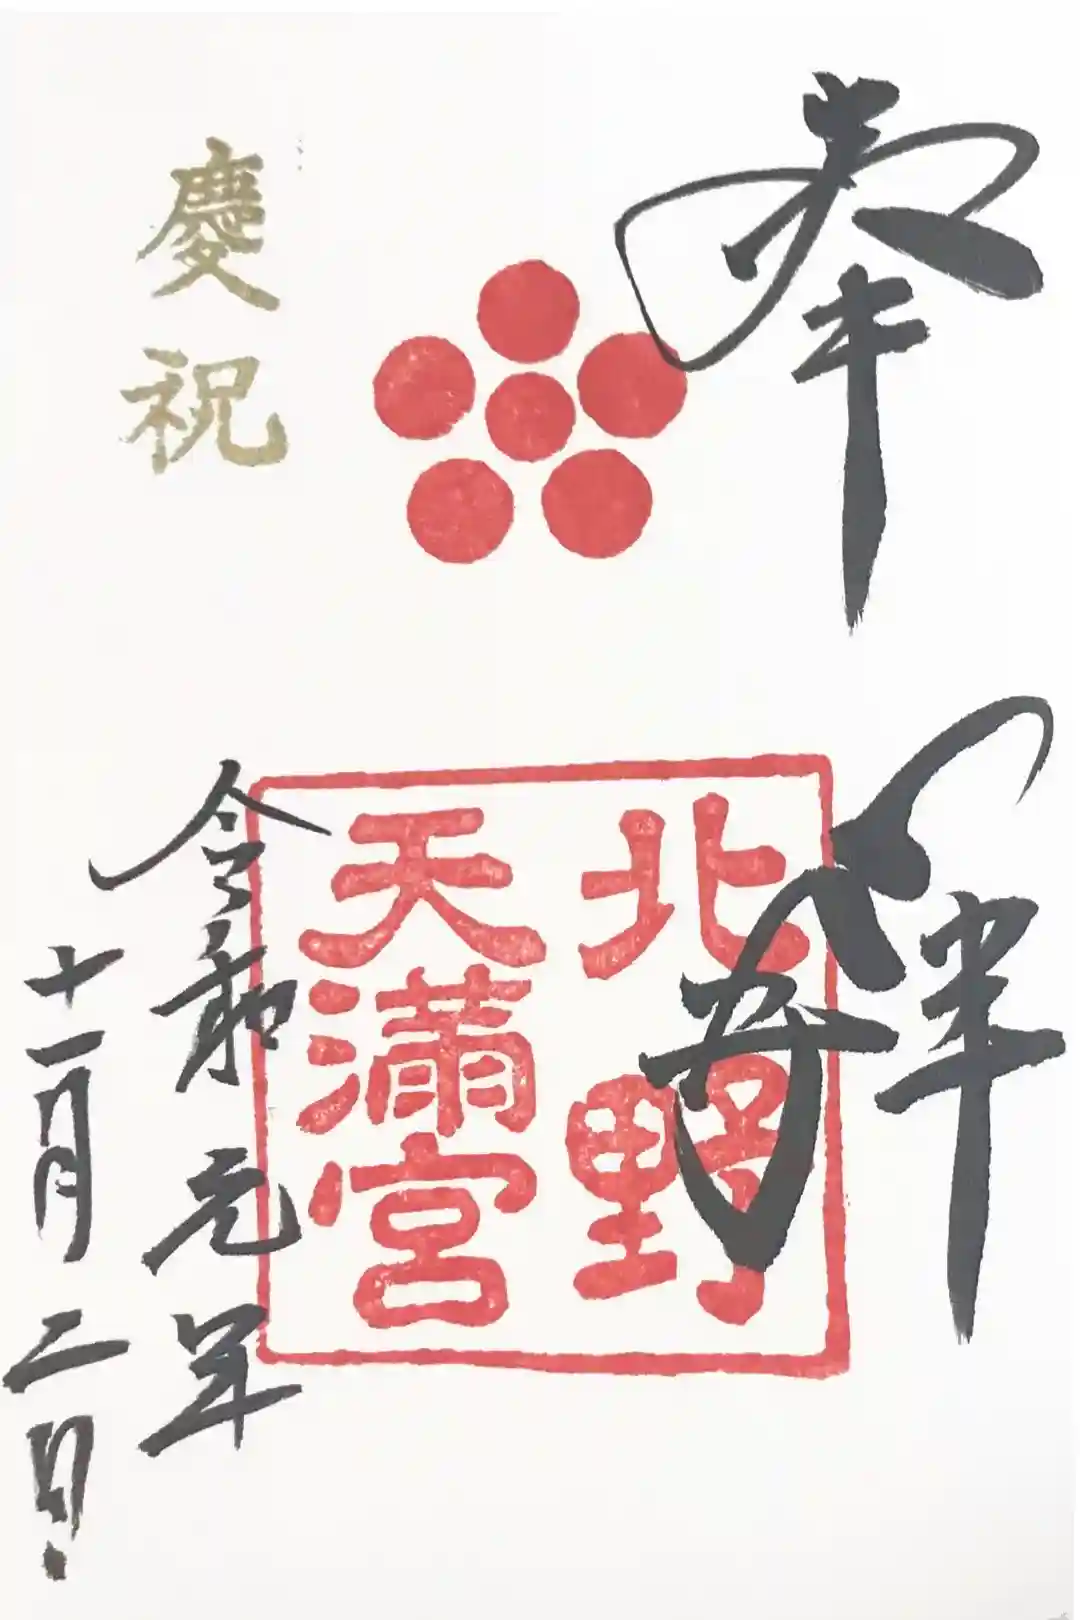 奉拜
北野
天滿宮
慶祝
令和元年
十一月二日